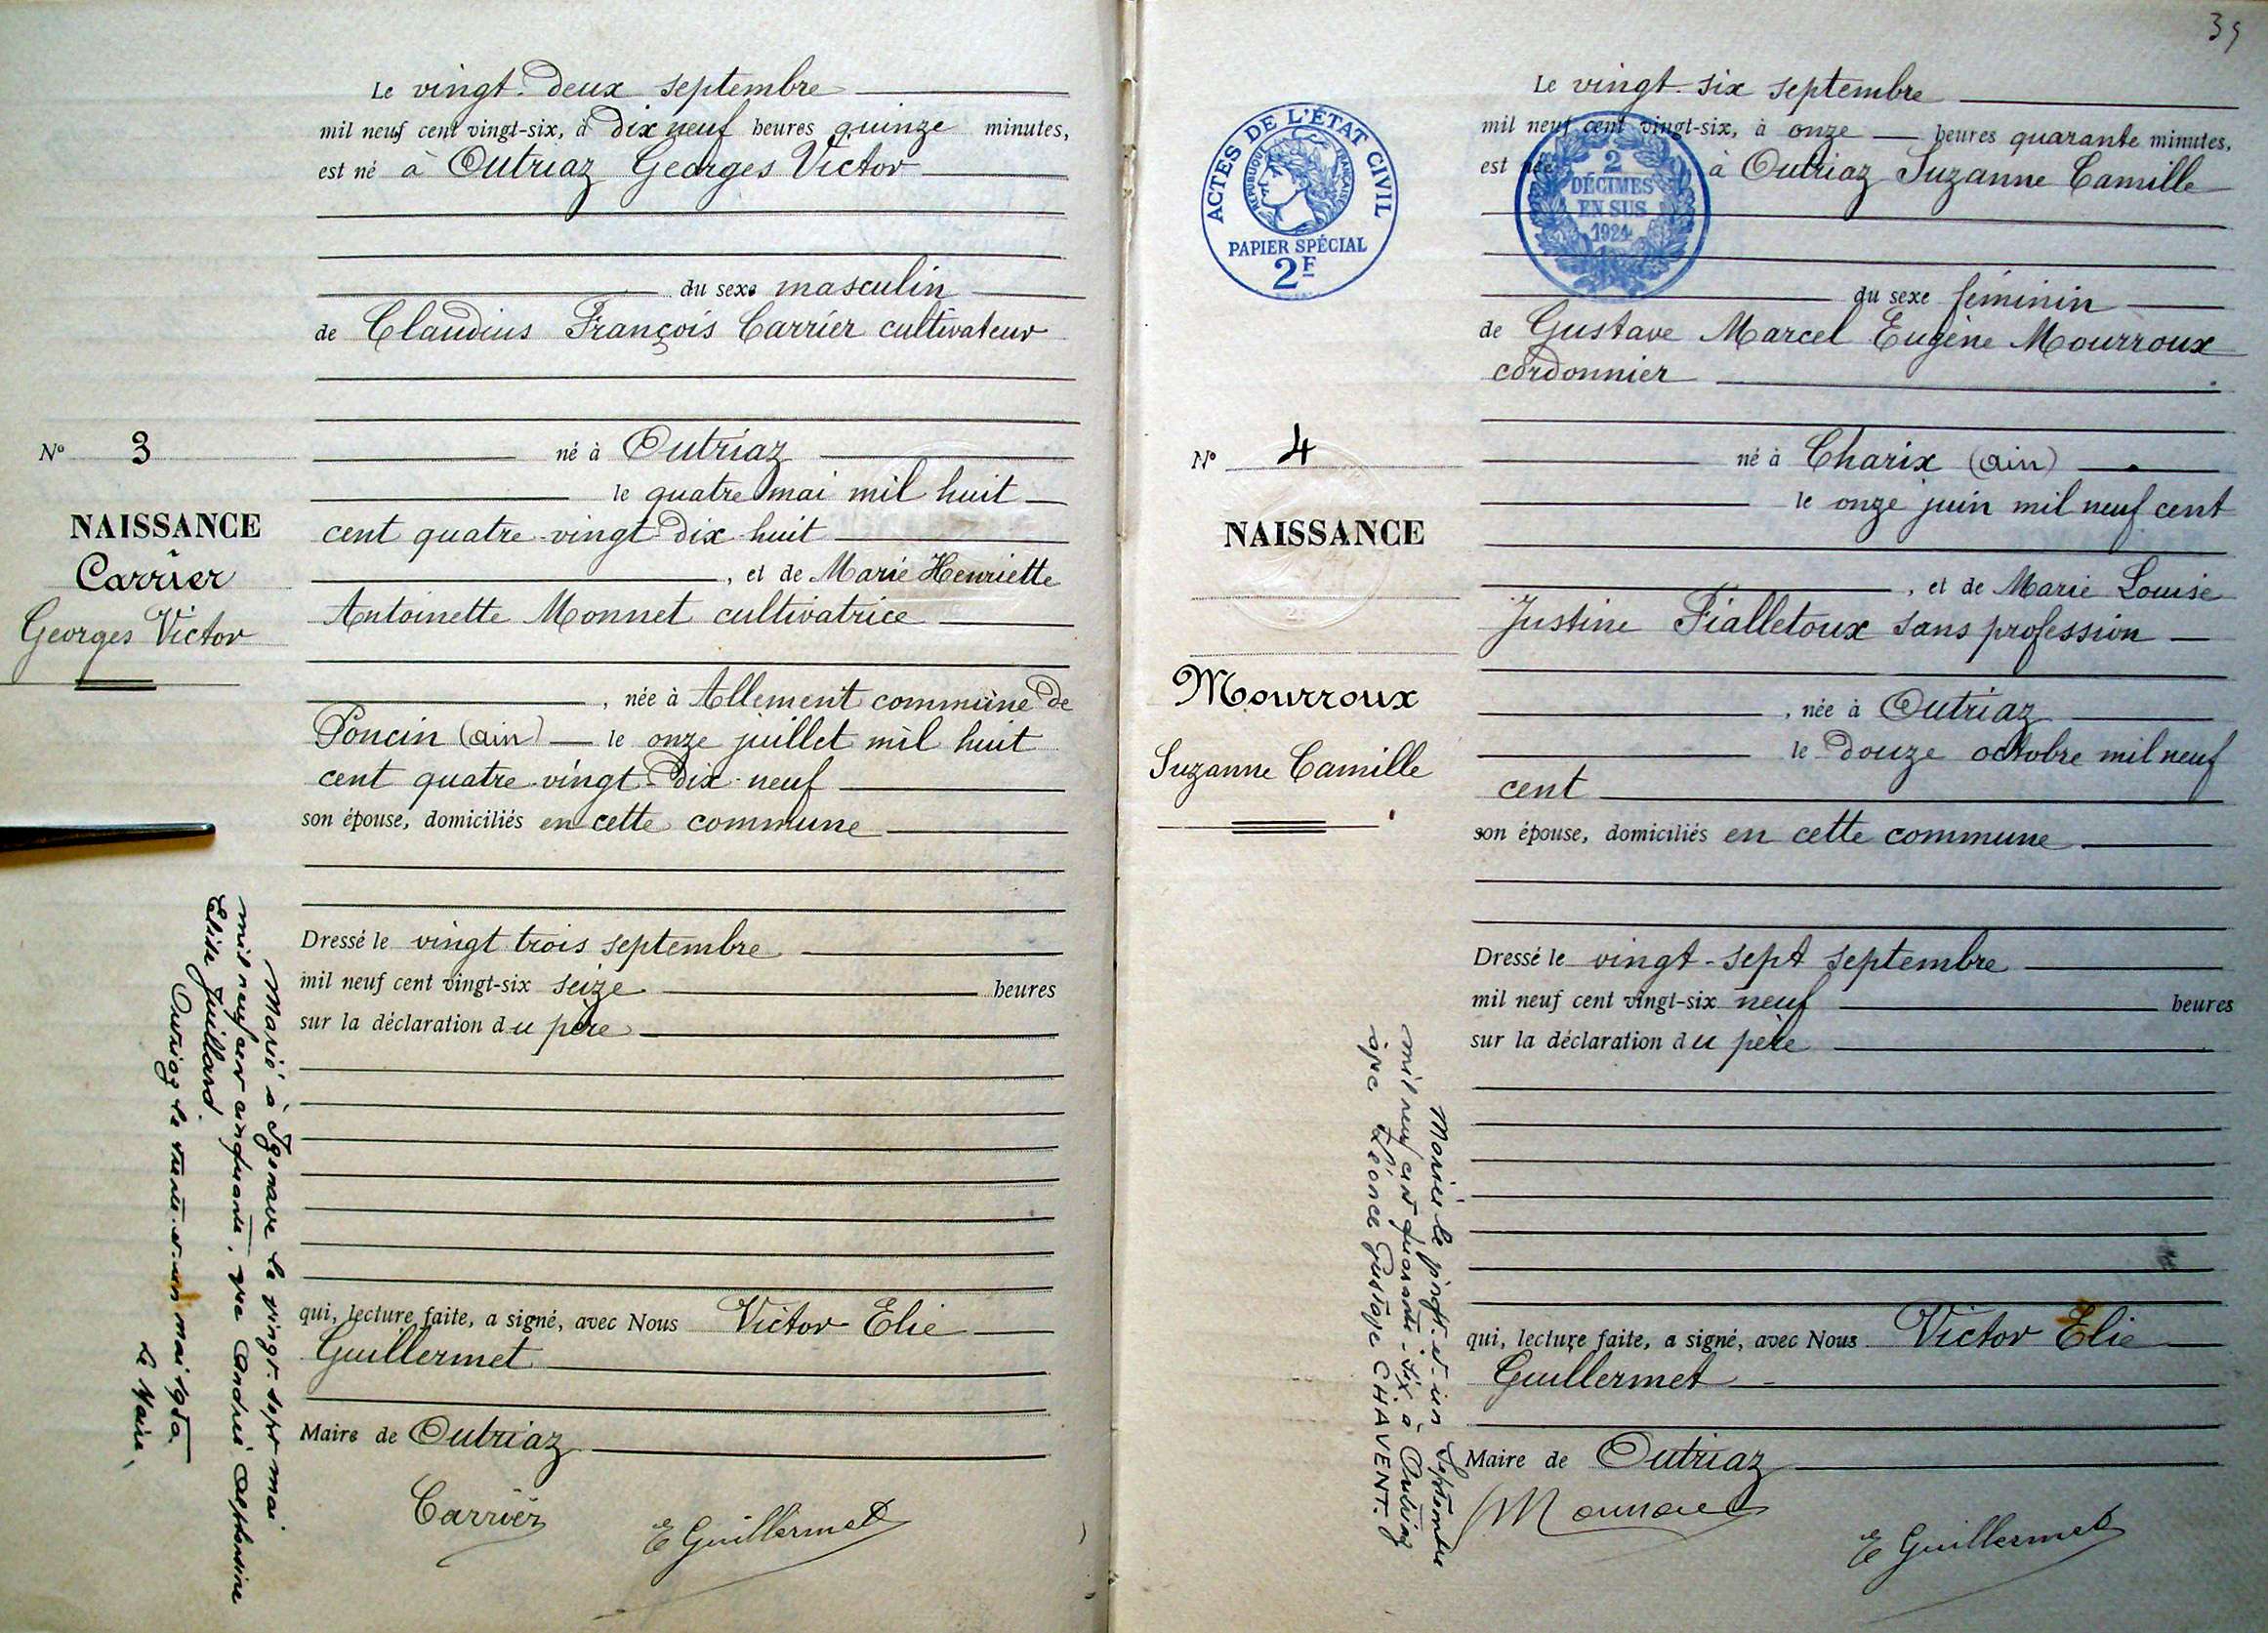 Le vingt-deux septembre
mil neuf cent vingt-six, à dix neuf heures quinze minutes,
est né à Outriaz Georges Victor
du sexe masculin
de Claudius François Carrier cultivateur
né à Outriaz
le quatre mai mil huit
cent quatre-vingt-dix-huit
, et de Marie Henriette
Antoinette Monnet cultivatrice
, née à Allement commune de
Poncin (Ain) le onze juillet mil huit
cent quatre-vingt-dix-neuf
son épouse, domiciliés en cette commune
Dressé le vingt trois septembre
mil neuf cent vingt-six seize heures
sur la déclaration du père
qui, lecture faite, a signé, avec Nous Victor Elie
Guillermet
Maire de Outriaz
Carrier
E Guillermet
N° 3
NAISSANCE
Carrier
Georges Victor
Marié à Izenave le vingt-sept mai
mil neuf cent cinquante, avec Andrée Alphonsine
Elise Juillard
Outriaz le trente-et-un mai 1950
Le Maire,
35
Le vingt-six septembre
mil neuf cent vingt-six, à onze heures quarante minutes,
est née à Outriaz Suzanne Camille
du sexe féminin
de Gustave Marcel Eugène Mourroux
cordonnier
né à Charix (Ain)
le onze juin mil neuf cent
, et de Marie Louise
Justine Fialletoux sans profession
, née à Outriaz
le douze octobre mil neuf
cent
son épouse, domiciliés en cette commune
Dressé le vingt-sept septembre
mil neuf cent vingt-six neuf heures
sur la déclaration du père
qui, lecture faite, a signé, avec Nous Victor Elie
Guillermet
Maire de Outriaz
E Guillermet
ACTES DE L'ÉTAT CIVIL
RÉPUBLIQUE FRANÇAISE
PAPIER SPÉCIAL
2F
2
DÉCIMES
EN SUS
1924
N° 4
NAISSANCE
Mourroux
Suzanne Camille
Mariée le vingt-et-un Septembre
mil neuf cent quarante-six à Outriaz
avec Léonce Gustave CHAVENT.